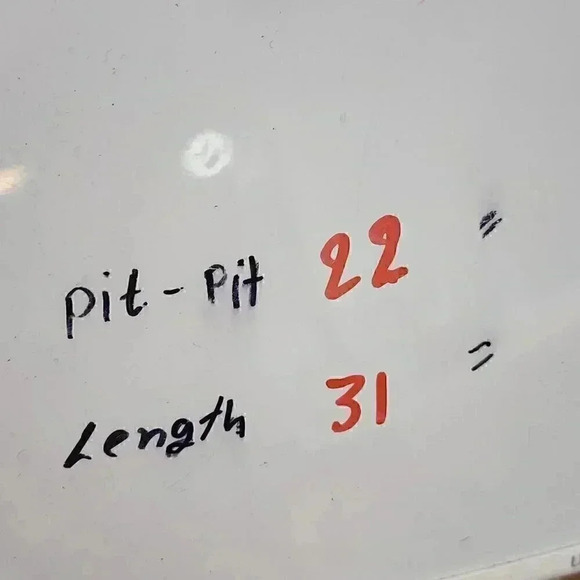 Pit - Pit 22 "
Length 31 "